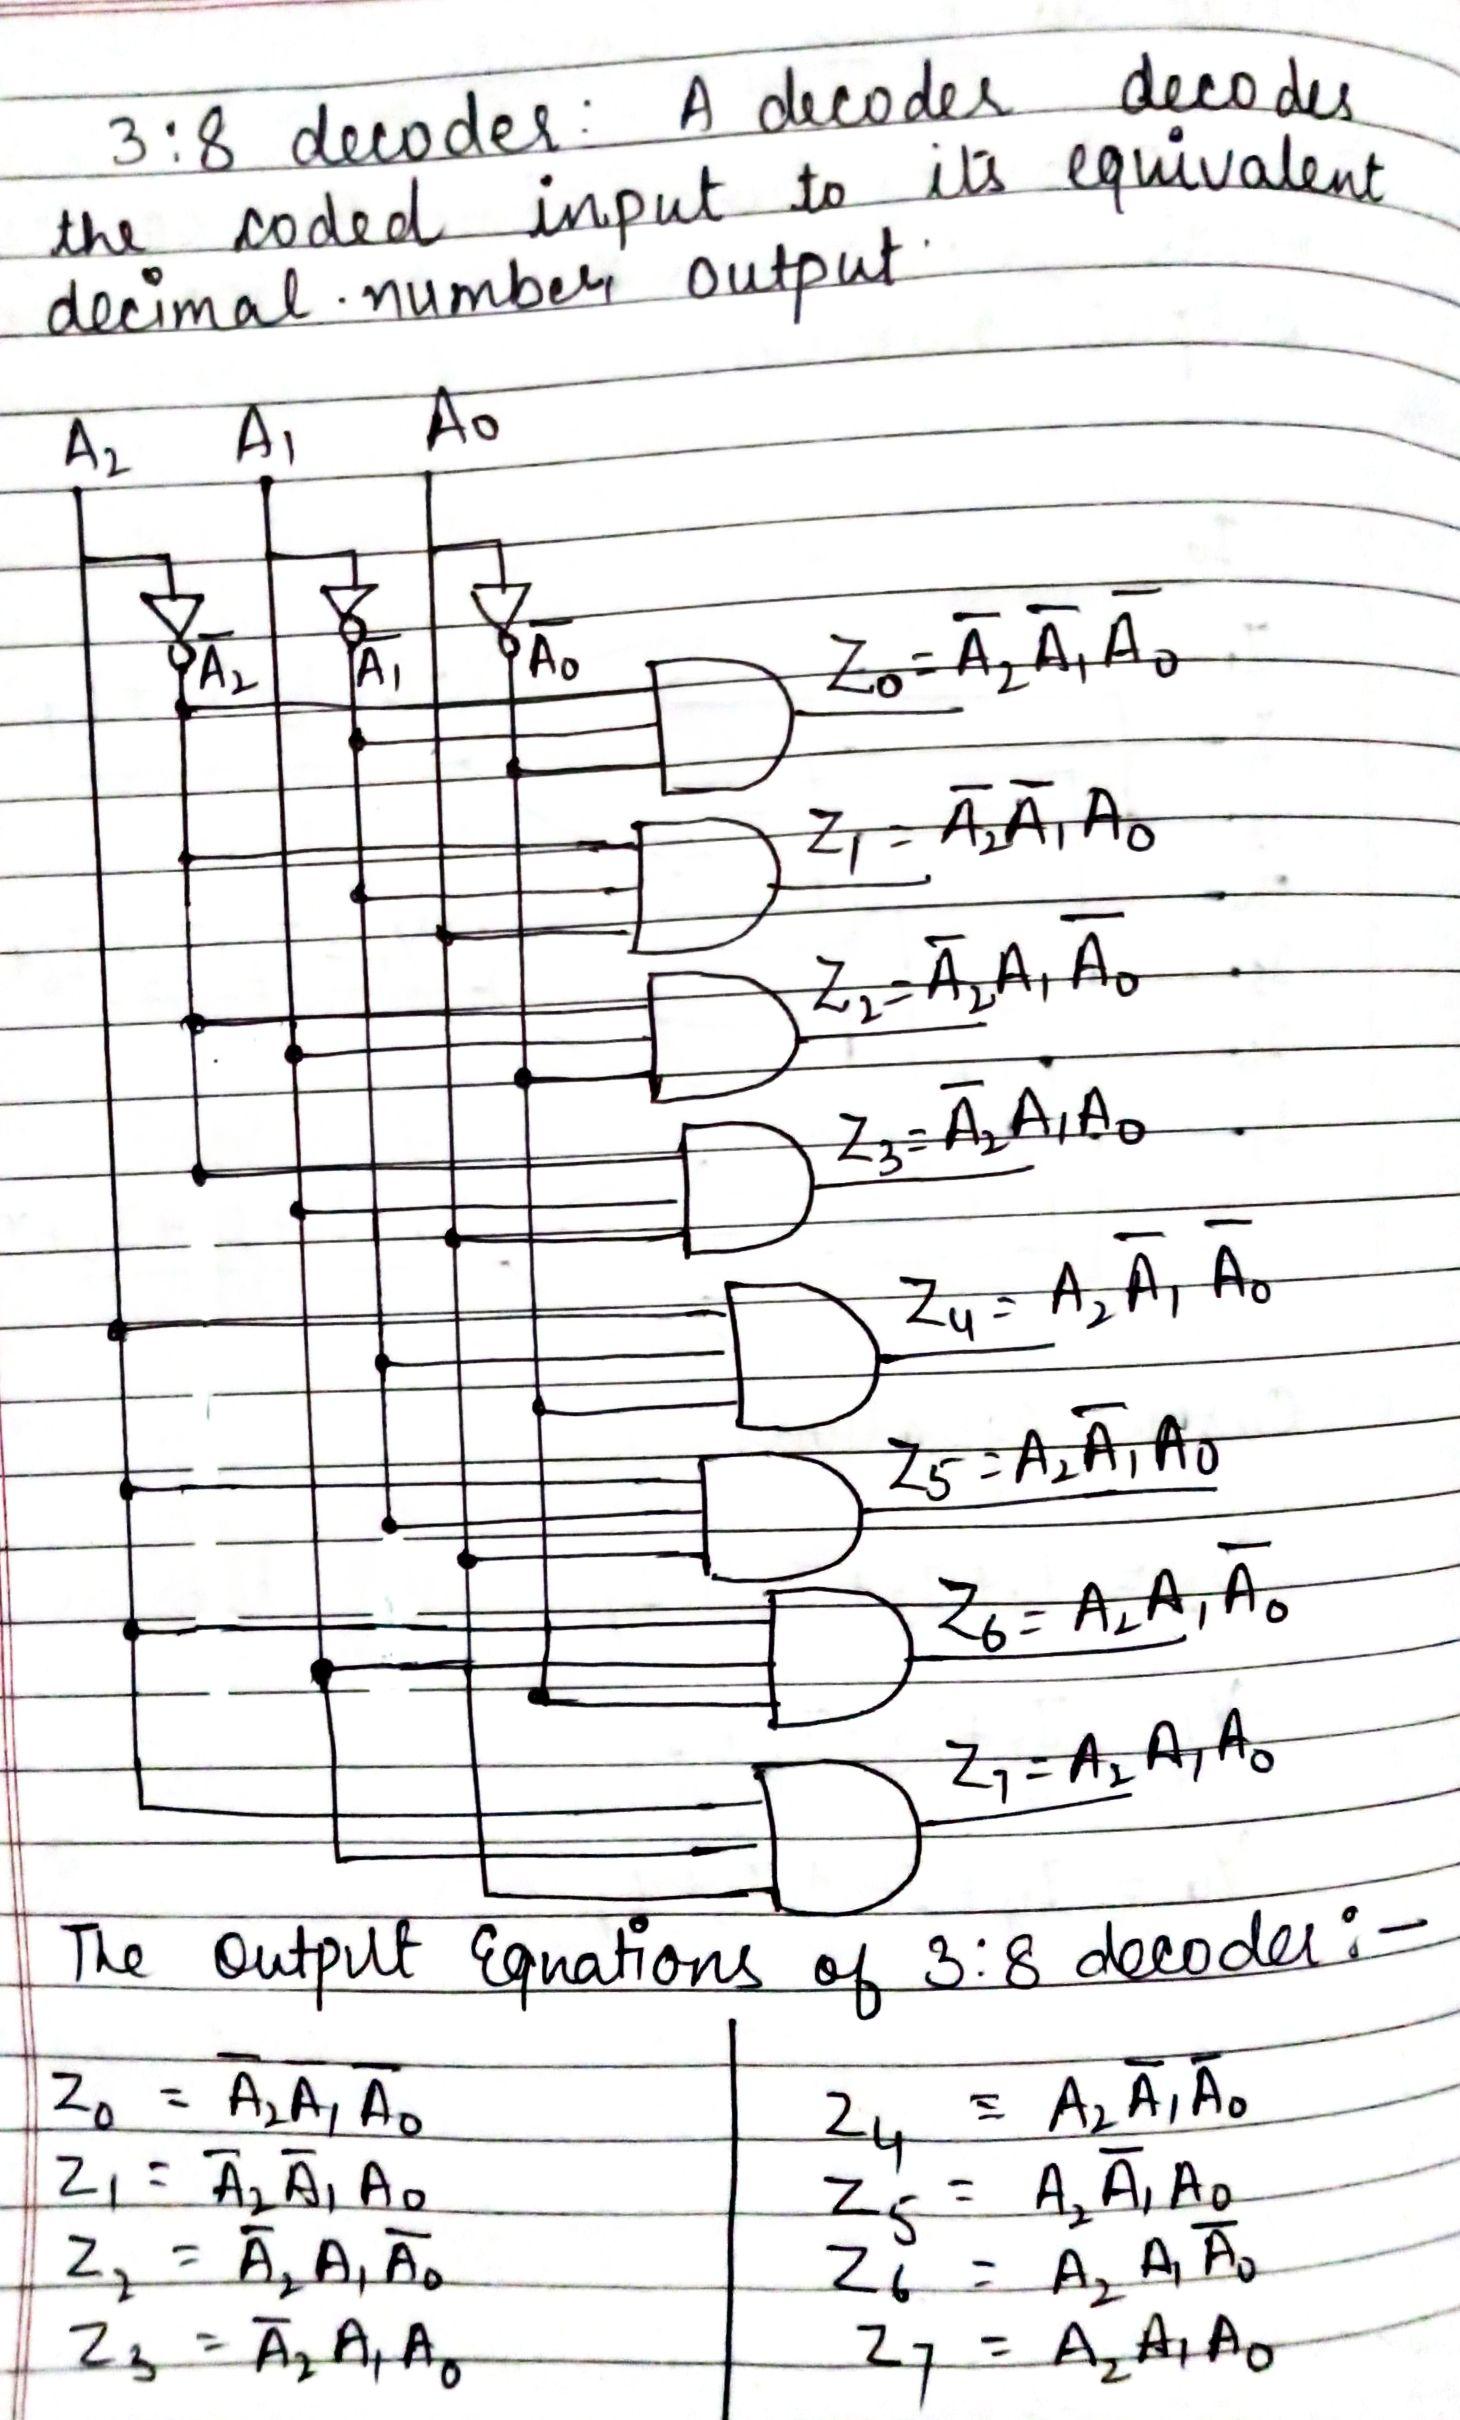 3:8 decoder: A decoder decodes
the coded input to its equivalent
decimal number output.
A₂ A₁ A₀
A̅₂ A̅₁ A̅₀
Z₀ = A̅₂ A̅₁ A̅₀
Z₁ = A̅₂ A̅₁ A₀
Z₂ = A̅₂ A₁ A̅₀
Z₃ = A̅₂ A₁ A₀
Z₄ = A₂ A̅₁ A̅₀
Z₅ = A₂ A̅₁ A₀
Z₆ = A₂ A₁ A̅₀
Z₇ = A₂ A₁ A₀
The Output Equations of 3:8 decoder:-
Z₀ = A̅₂ A̅₁ A̅₀
Z₁ = A̅₂ A̅₁ A₀
Z₂ = A̅₂ A₁ A̅₀
Z₃ = A̅₂ A₁ A₀
Z₄ = A₂ A̅₁ A̅₀
Z₅ = A₂ A̅₁ A₀
Z₆ = A₂ A₁ A̅₀
Z₇ = A₂ A₁ A₀